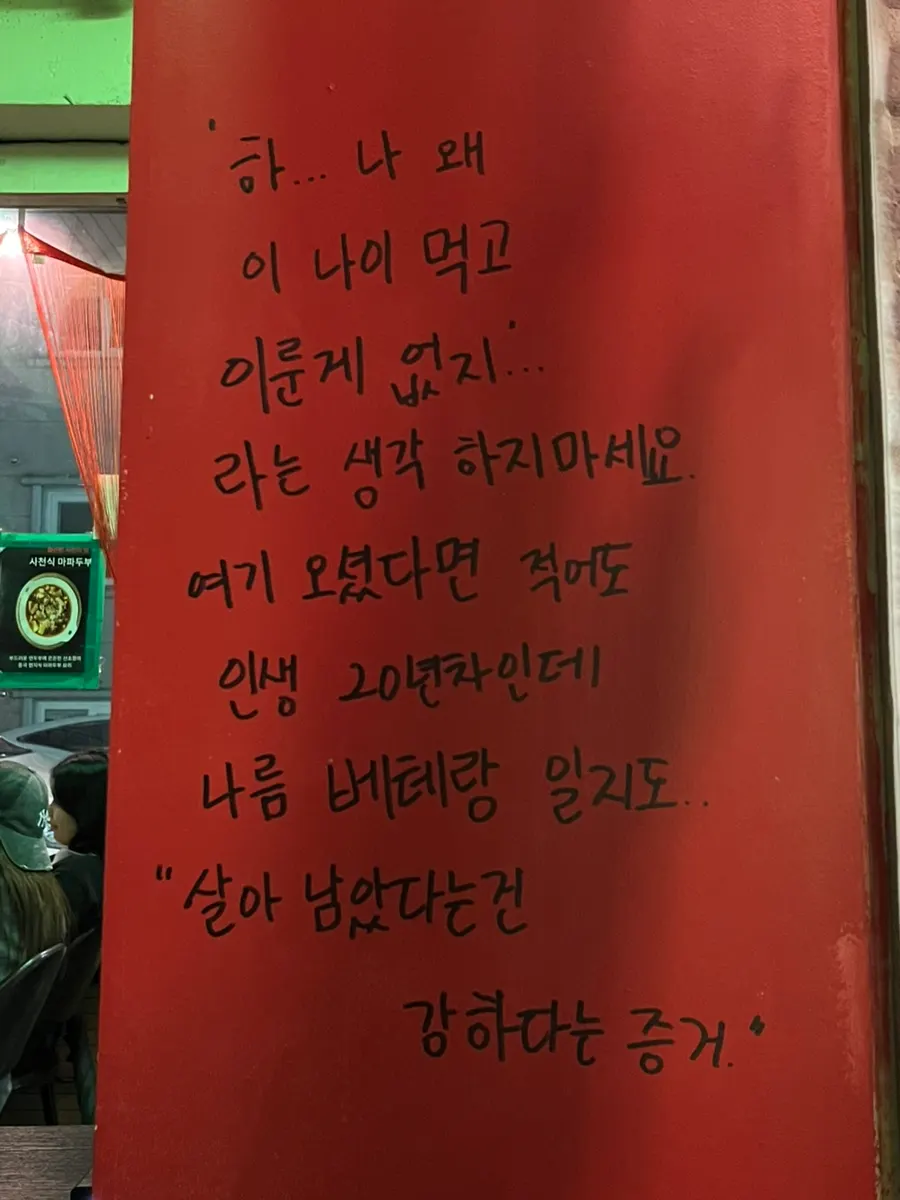 '하... 나 왜
이 나이 먹고
이룬게 없지'...
라는 생각 하지마세요.
여기 오셨다면 적어도
인생 20년차인데
나름 베테랑 일지도..
"살아 남았다는건
강하다는 증거."
사천식 마파두부